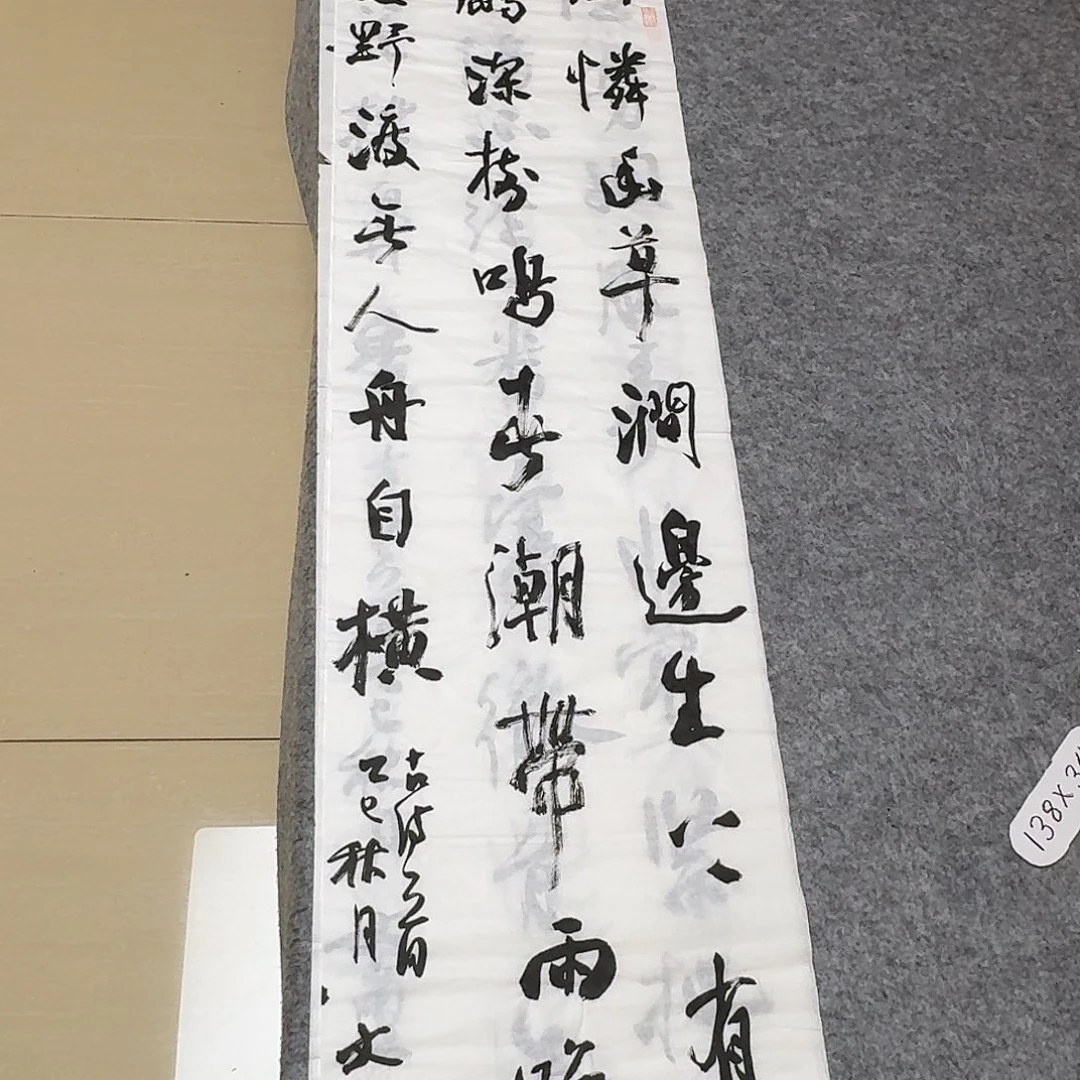 憐幽草澗邊生上有
鸝深樹鳴春潮帶雨晚
野渡無人舟自橫
古诗一首
乙巳秋月 文
138X